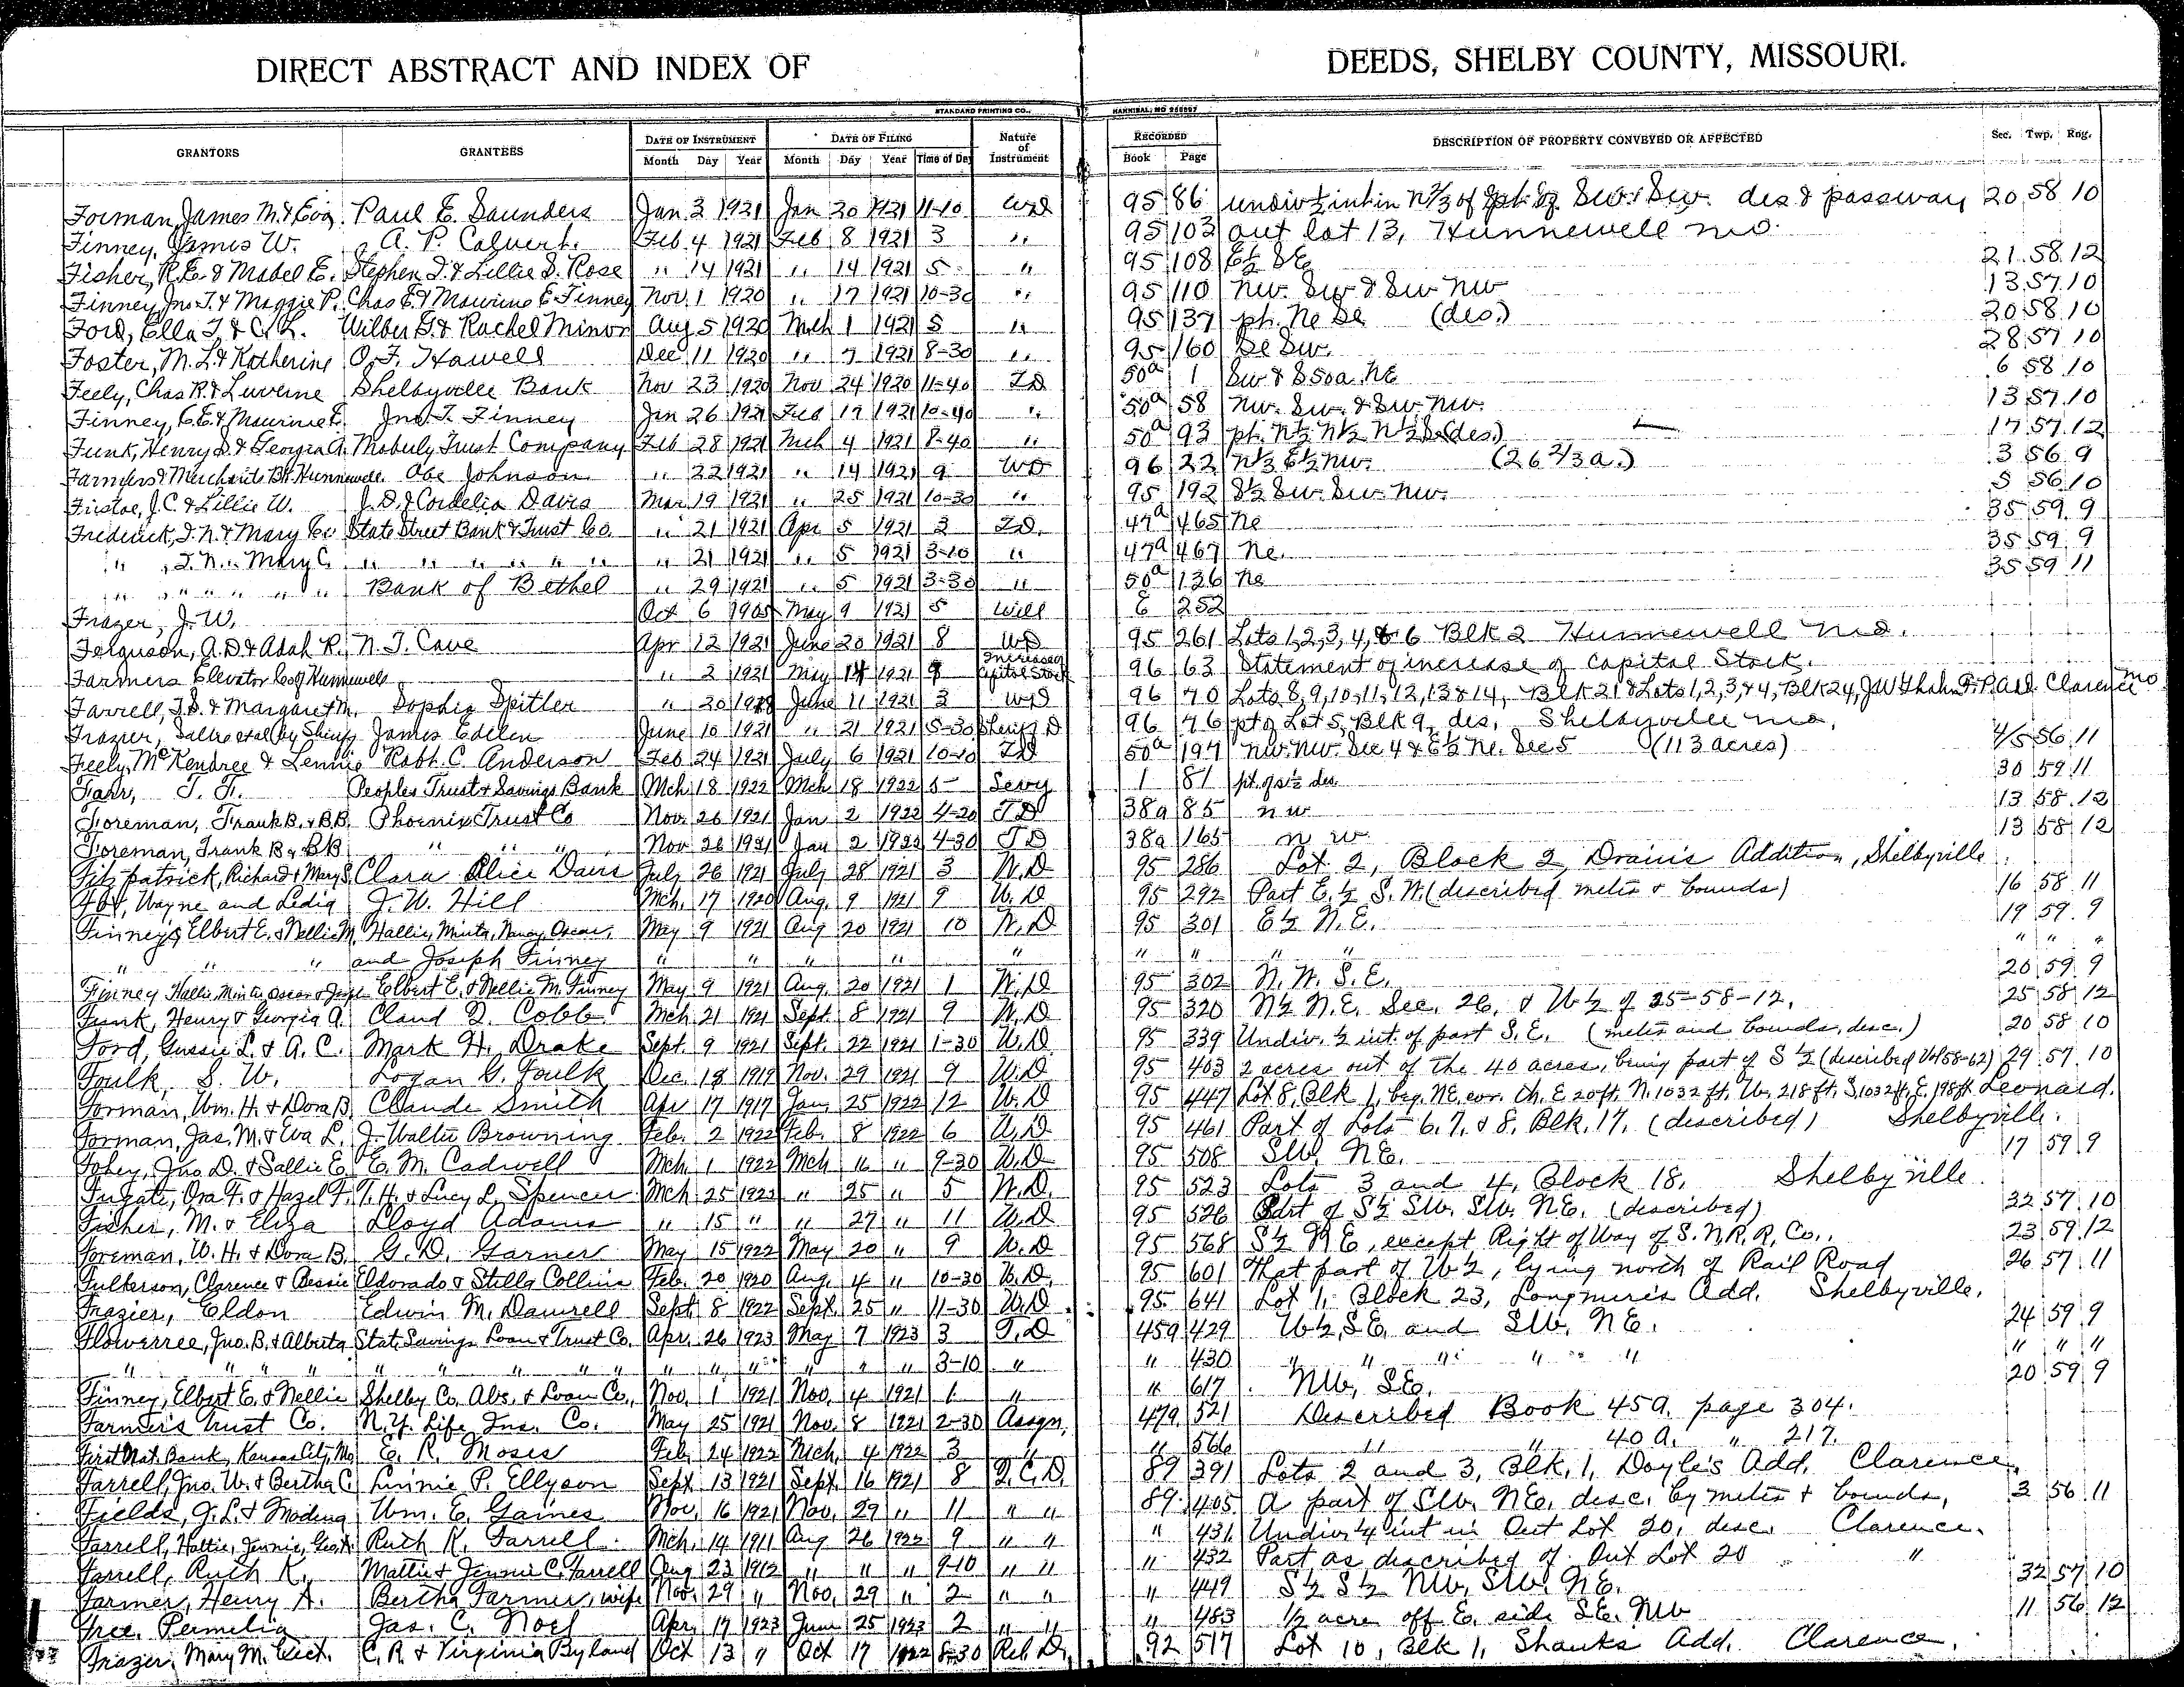 DIRECT ABSTRACT AND INDEX OF DEEDS, SHELBY COUNTY, MISSOURI.
STANDARD PRINTING CO., HANNIBAL, MO
GRANTORS GRANTEES DATE OF INSTRUMENT DATE OF FILING Nature of Instrument RECORDED DESCRIPTION OF PROPERTY CONVEYED OR AFFECTED Sec. Twp. Rng.
Month Day Year Month Day Year Time of Day Book Page
Forman, James M. & Eva Paul E. Saunders Jan 3 1921 Jan 20 1921 11-10 WD 95 86 undiv ½ int in N 2/3 of Sw. Sw. des & passway 20 58 10
Finney, James W. A. P. Calvert. Feb 4 1921 Feb 8 1921 3 " 95 103 out lot 13, Hunnewell mo.
Fisher, R.E. & Mabel E. Stephen D. & Lillie S. Rose " 14 1921 " 14 1921 5 " 95 108 E½ SE 21 58 12
Finney, Jno. T. & Maggie P. Chas E. & Maurine E Finney Nov. 1 1920 " 17 1921 10-30 " 95 110 nw. Sw & Sw nw 13 57 10
Ford, Ella L. & C. L. Wilber G. & Rachel Minor Aug 5 1920 Mch 1 1921 5 " 95 137 pt. Ne Se (des.) 20 58 10
Foster, M. L. & Katherine O. F. Howell Dec 11 1920 " 7 1921 8-30 " 95 160 Se Sw. 28 57 10
Feely, Chas R. & Luverne Shelbyville Bank Nov 23 1920 Nov 24 1920 11-40 TD 50a 1 Sw & S50a. NE 6 58 10
Finney, C.E. & Maurine E. Jno. T. Finney Jan 26 1921 Feb 17 1921 10-40 " 50a 58 nw. Sw. & Sw. nw. 13 57 10
Funk, Henry S. & Georgia A. Moberly Trust Company Feb 28 1921 Mch 4 1921 8-40 " 50a 93 pt. N½ N½ N½ (des.) 17 57 12
Farmers & Merchants Bk Hunnewell. Abe Johnson " 22 1921 " 14 1921 9 WD 96 22 E½ nw. (26 2/3 a.) 3 56 9
J.C. & Lillie W. J. D. & Cordelia Davis Mar 19 1921 " 25 1921 10-30 " 95 192 S½ Sw. Sw. nw. 5 56 10
Frederick, J. N. & Mary C. State Street Bank & Trust Co. " 21 1921 Apr 5 1921 3 TD. 47a 465 Ne 35 59 9
" , J. N. " Mary C. " " " " " " " 21 1921 " 5 1921 3-10 " 47a 467 Ne. 35 59 9
" " " " " " Bank of Bethel " 29 1921 " 5 1921 3-30 " 50a 136 Ne 35 59 11
Frazer, J. W. Oct 6 1905 May 9 1921 5 Will E 252
Ferguson, A. D. & Adah R. N. T. Cave Apr 12 1921 June 20 1921 8 WD 95 261 Lots 1, 2, 3, 4, & 6 Blk 2 Hunnewell mo.
Farmers Elevator Co of Hunnewell " 2 1921 May 14 1921 9 Increased Capital Stock 96 63 Statement of increase of Capital Stock.
Farrell, J. S. & Margaret M. Sophia Spitler " 20 June 11 1921 3 WD 96 70 Lots 8, 9, 10, 11, 12, 13 & 14, Blk 21 & Lots 1, 2, 3, & 4, Blk 24, Add. Clarence mo
Frazier, Sallie et al by Sheriff James Edelen June 10 1921 " 21 1921 5-30 Sheriff D 96 76 pt of Lot 5, Blk 9, des, Shelbyville mo,
Feely, McKendree & Lennie Robt. C. Anderson Feb 24 1921 July 6 1921 10-10 TD 50a 197 nw. nw. Sec 4 & E½ Ne. Sec 5 (113 acres) 4/5 56 11
Fahr, T. F. Peoples Trust & Savings Bank Mch 18 1922 Mch 18 1922 5 Levy 1 81 pt. of s½ des. 30 59 11
Foreman, Frank B. & B.B. Phoenix Trust Co Nov. 26 1921 Jan 2 1922 4-20 T D 38a 85 n w 13 58 12
Foreman, Frank B & BB " " " Nov 26 1921 Jan 2 1922 4-30 T D 38a 165 n w 13 58 12
Fitzpatrick, Richard & Mary S. Clara Alice Davis July 26 1921 July 28 1921 3 W. D 95 286 Lot 2, Block 2, Drain's Addition, Shelbyville.
Wayne and Lidia J. W. Hill Mch. 17 1920 Aug. 9 1921 9 W. D 95 292 Part E. ½ S. W. (described metes & bounds) 16 58 11
Finney, Elbert E. & Nellie M. Hallie, Minta, Nancy, Oscar, May 9 1921 Aug 20 1921 10 W. D 95 301 E ½ N. E. 19 59 9
" " " and Joseph Finney " " " " " " " " " " "
Finney Hallie, Minta, Oscar & Joseph Elbert E. & Nellie M. Finney May 9 1921 Aug. 20 1921 1 W. D 95 302 N. W. S. E. 20 59 9
Funk, Henry & Georgia A. Claud D. Cobb Mch. 21 1921 Sept. 8 1921 9 W. D 95 320 N½ N. E. Sec. 26, & W ½ of 25-58-12. 25 58 12
Ford, Gussie L. & A. C. Mark H. Drake Sept. 9 1921 Sept. 22 1921 1-30 W. D. 95 339 Undiv. ½ int. of part S. E. (metes and bounds, desc.) 20 58 10
Foulk, S. W. Logan G. Foulk Dec. 19 1919 Nov. 29 1921 9 W. D 95 403 2 acres out of the 40 acres, being part of S ½ (described Vol 58-62) 29 57 10
Forman, Wm. H. & Dora B. Claude Smith Apr 17 1917 Jan. 25 1922 12 W. D 95 447 Lot 8, Blk 1, beg. NE. cor. th. E 20 ft. N. 1032 ft. W. 218 ft. S, 1032 ft, E. 198 ft. Leonard.
Forman, Jas. M. & Eva L. J. Walter Browning Feb. 2 1922 Feb. 8 1922 6 W. D. 95 461 Part of Lots 6, 7, & 8, Blk. 17. (described) Shelbyville.
Fohey, Jno. D. & Sallie E. E. M. Cadwell Mch. 1 1922 Mch 16 " 9-30 W. D. 95 508 SW. NE. 17 59 9
Fugate, Ora F. & Hazel F. T. H. & Lucy L. Spencer Mch 25 1922 " 25 " 5 W. D. 95 523 Lots 3 and 4, Block 18, Shelbyville.
Fisher, M. & Eliza Lloyd Adams " 15 " " 27 " 11 W. D 95 526 Part of S½ SW. SW. N.E. (described) 32 57 10
Foreman, W. H. & Dora B. G. D. Garner May 15 1922 May 20 " 9 W. D 95 568 S½ N E, except Right of Way of S. N. R. R. Co., 23 59 12
Fulkerson, Clarence & Bessie Eldorado & Stella Collins Feb. 20 1920 Aug. 4 " 10-30 W. D. 95 601 That part of W ½, lying north of Rail Road 26 57 11
Frazier, Eldon Edwin M. Damrell Sept 8 1922 Sept. 25 " 11-30 W. D. 95 641 Lot 1, Block 23, Longmire's Add. Shelbyville.
Flowerree, Jno. B. & Alberta State Savings Loan & Trust Co. Apr. 26 1923 May 7 1923 3 T. D 45a 429 W½, SE. and SW. NE. 24 59 9
" " " " " " " " " " " " " " 3-10 " " 430 " " " " " " " "
Finney, Elbert E. & Nellie Shelby Co. Abs. & Loan Co. Nov. 1 1921 Nov. 4 1921 1 " " 617 NW, SE. 20 59 9
Farmer's Trust Co. N. Y. Life Ins. Co. May 25 1921 Nov. 8 1921 2-30 Assgn. 47a 521 Described Book 45a. page 304.
First Nat. Bank, Kansas City, Mo E. R. Moses Feb. 24 1922 Mch. 4 1922 3 " " 566 " " 40 a. " 217.
Farrell, Jno. W. & Bertha C. Linnie P. Ellyson Sept. 13 1921 Sept. 16 1921 8 Q. C. D. 89 391 Lots 2 and 3, Blk. 1, Doyle's Add. Clarence.
Fields, J. L. & Modena Wm. E. Gaines Nov. 16 1921 Nov. 29 " 11 " " 89 405 A part of SW. NE. desc. by metes & bounds, 3 56 11
Farrell, Hattie, Jennie, Ruth K. Farrell Mch. 14 1911 Aug 26 1922 9 " " " 431 Undiv. ¼ int in Out Lot 20, desc. Clarence.
Farrell, Ruth K. Mattie & Jennie C. Farrell Aug 23 1912 " " " 9-10 " " " 432 Part as described of Out Lot 20 "
Farmer, Henry A. Bertha Farmer, wife Nov. 29 " Nov. 29 " 2 " " " 449 S½ S½ NW, SW. NE. 32 57 10
Free, Permelia Jas. C. Noel Apr. 17 1923 June 25 1923 2 " " " 483 ½ acre off E. side SE. NW 11 56 12
Frazer, Mary M. C. R. & Virginia Byland Oct 13 " Oct 17 1922 8-30 Rel. D. 92 517 Lot 10, Blk 1, Shanks Add. Clarence.